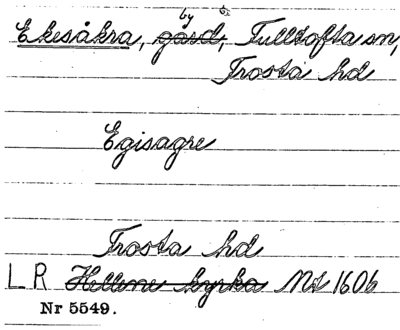 by
Ekesåkra, gård, Fulltofta sn,
Frosta hd
Egisagre
Frosta hd
LR Hellene kyrka Ms 1606
Nr 5549.